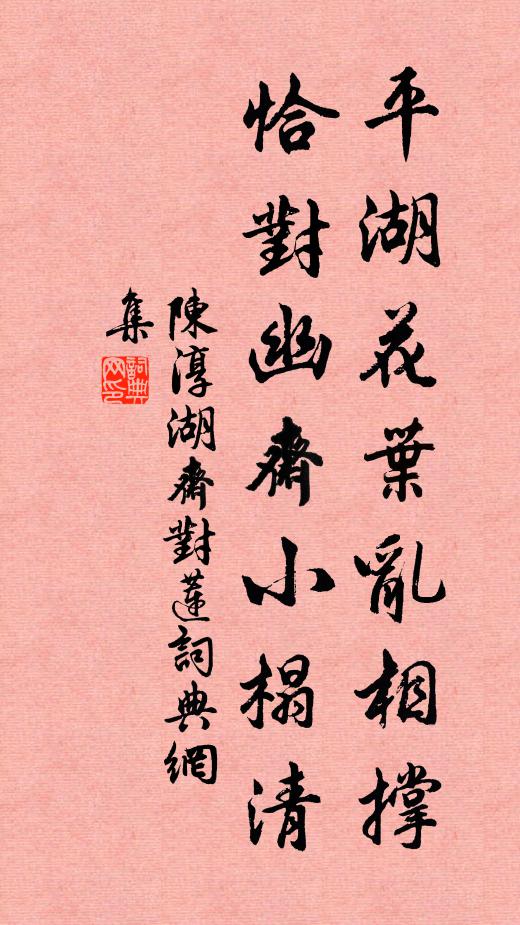 平湖花葉亂相撐
恰對幽齋小榻清
陳淳湖齋對蓮詞典網
集
詞典網印